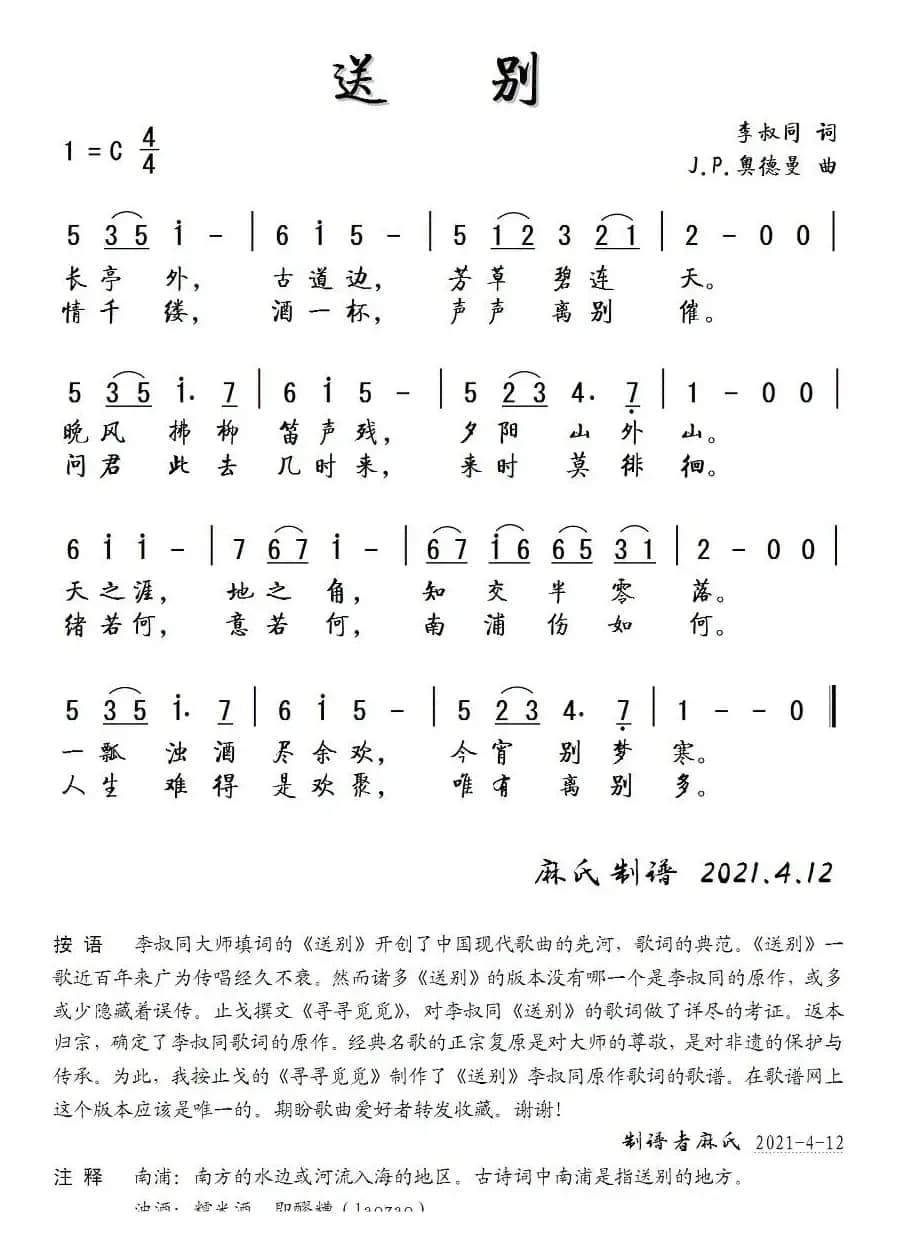 送 别
1=C 4/4
李叔同 词
J.P.奥德曼 曲
5 3 5 i - | 6 i 5 - | 5 1 2 3 2 1 | 2 - 0 0 |
长亭 外， 古道边， 芳草 碧连 天。
情千 缕， 酒一杯， 声声 离别 催。
5 3 5 i· 7 | 6 i 5 - | 5 2 3 4· 7̣ | 1 - 0 0 |
晚风 拂柳 笛声残， 夕阳 山外 山。
问君 此去 几时来， 来时 莫徘 徊。
6 i i - | 7 6 7 i - | 6 7 i 6 6 5 3 1 | 2 - 0 0 |
天之涯， 地之 角， 知 交 半 零 落。
绪若何， 意若 何， 南 浦 伤 如 何。
5 3 5 i· 7 | 6 i 5 - | 5 2 3 4· 7̣ | 1 - - 0 ‖
一瓢 浊酒 尽余欢， 今宵 别梦 寒。
人生 难得 是欢聚， 唯有 离别 多。
麻氏制谱 2021.4.12
按语 李叔同大师填词的《送别》开创了中国现代歌曲的先河，歌词的典范。《送别》一
歌近百年来广为传唱经久不衰。然而诸多《送别》的版本没有哪一个是李叔同的原作，或多
或少隐藏着误传。止戈撰文《寻寻觅觅》，对李叔同《送别》的歌词做了详尽的考证。返本
归宗，确定了李叔同歌词的原作。经典名歌的正宗复原是对大师的尊敬，是对非遗的保护与
传承。为此，我按止戈的《寻寻觅觅》制作了《送别》李叔同原作歌词的歌谱。在歌谱网上
这个版本应该是唯一的。期盼歌曲爱好者转发收藏。谢谢！
制谱者麻氏 2021-4-12
注释 南浦：南方的水边或河流入海的地区。古诗词中南浦是指送别的地方。
浊酒：糯米酒，即醪糟（laozao）